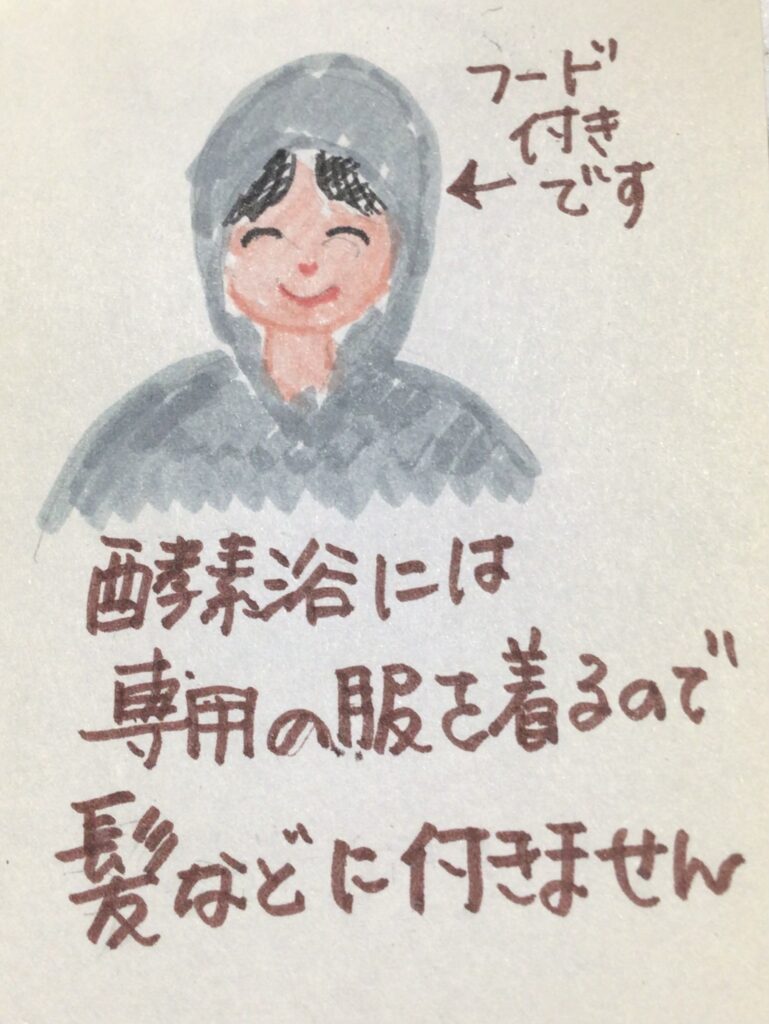 フード
付き
です
酵素浴には
専用の服を着るので
髪などに付きません